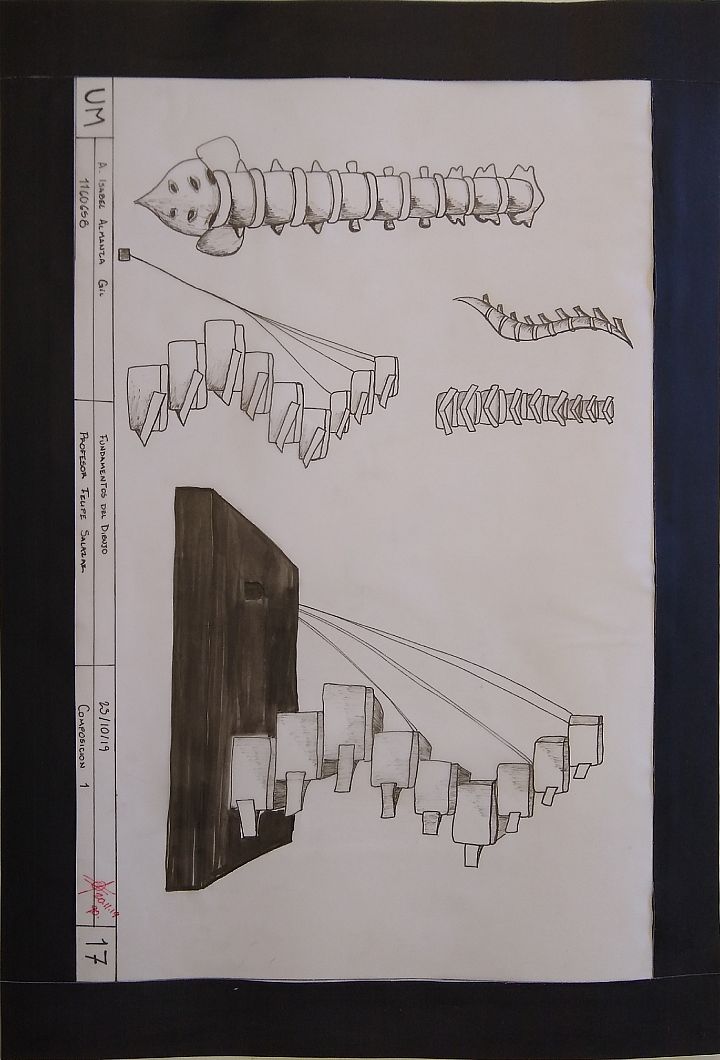 UM
A. ISABEL ALMANZA GIL
1160658
FUNDAMENTOS DEL DIBUJO
PROFESOR FELIPE SALAZAR
23/10/19
COMPOSICION 1
17